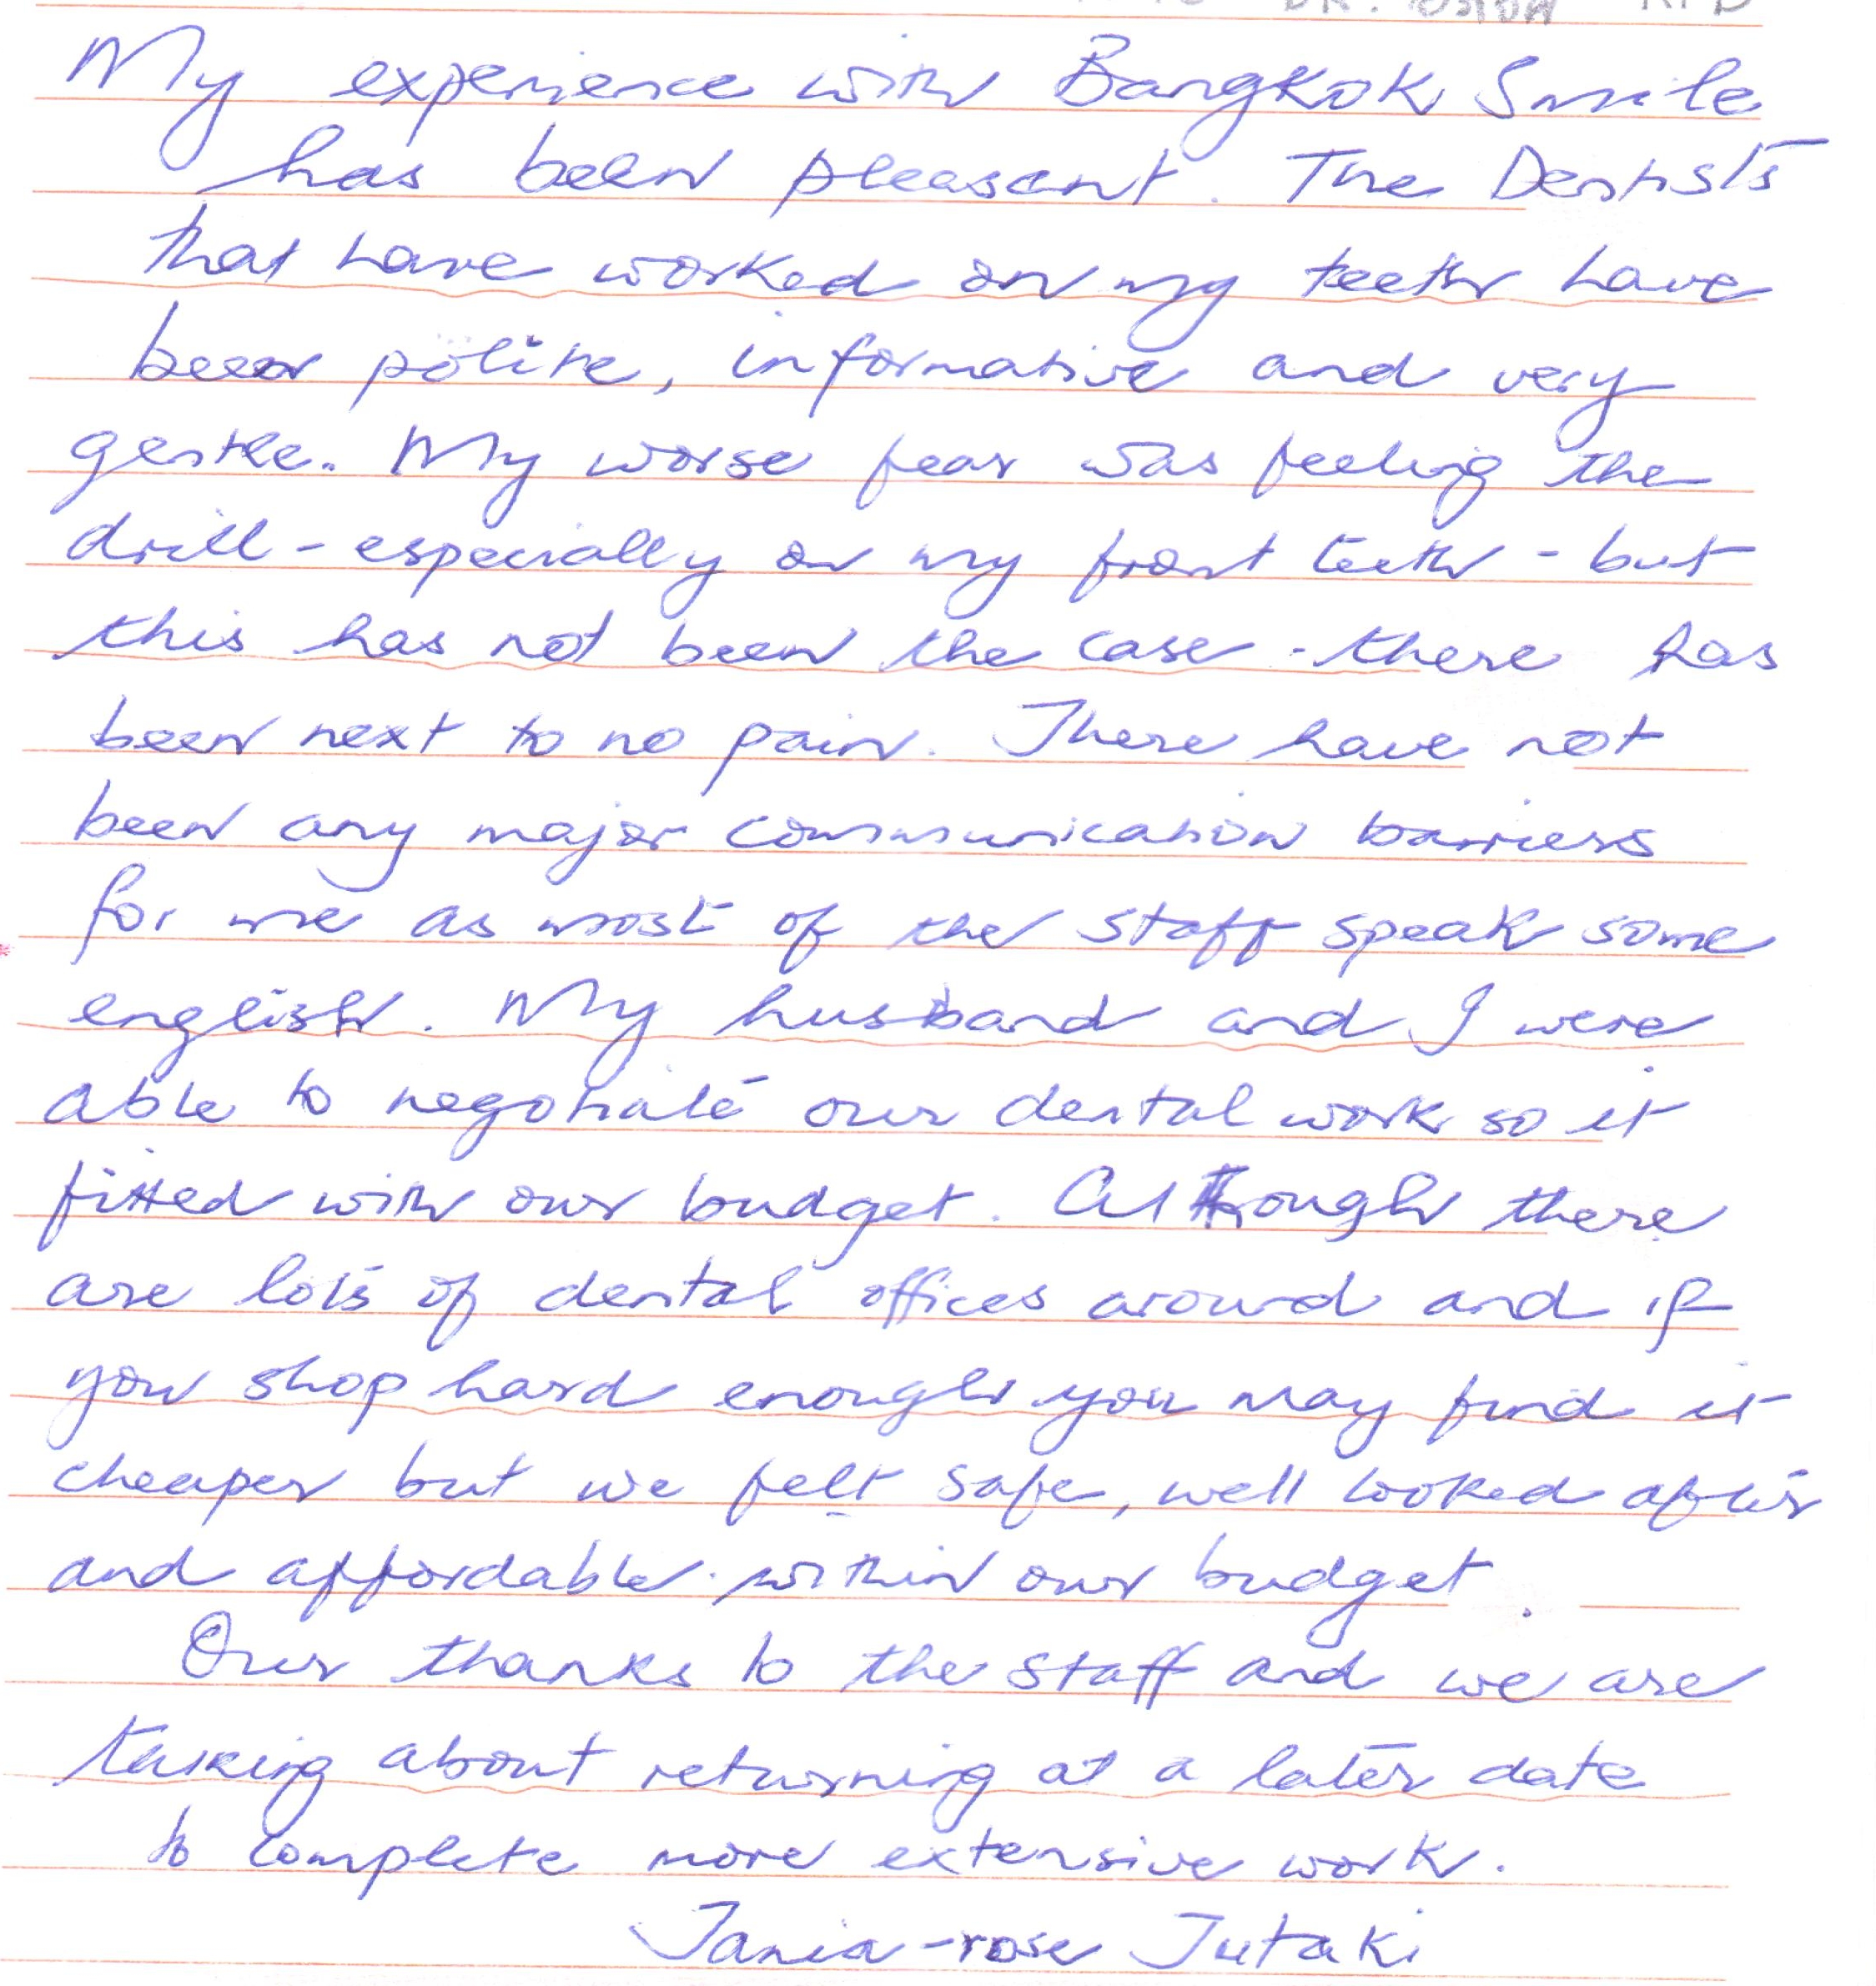 DR.
My experience with Bangkok Smile
has been pleasant. The Dentists
that have worked on my teeth have
been polite, informative and very
gentle. My worse fear was feeling the
drill - especially on my front teeth - but
this has not been the case - there has
been next to no pain. There have not
been any major communication barriers
for me as most of the staff speak some
english. My husband and I were
able to negotiate our dental work so it
fitted with our budget. Although there
are lots of dental offices around and if
you shop hard enough you may find it
cheaper but we felt safe, well looked after
and affordable within our budget.
Our thanks to the staff and we are
talking about returning at a later date
to complete more extensive work.
Tania-rose Tutaki